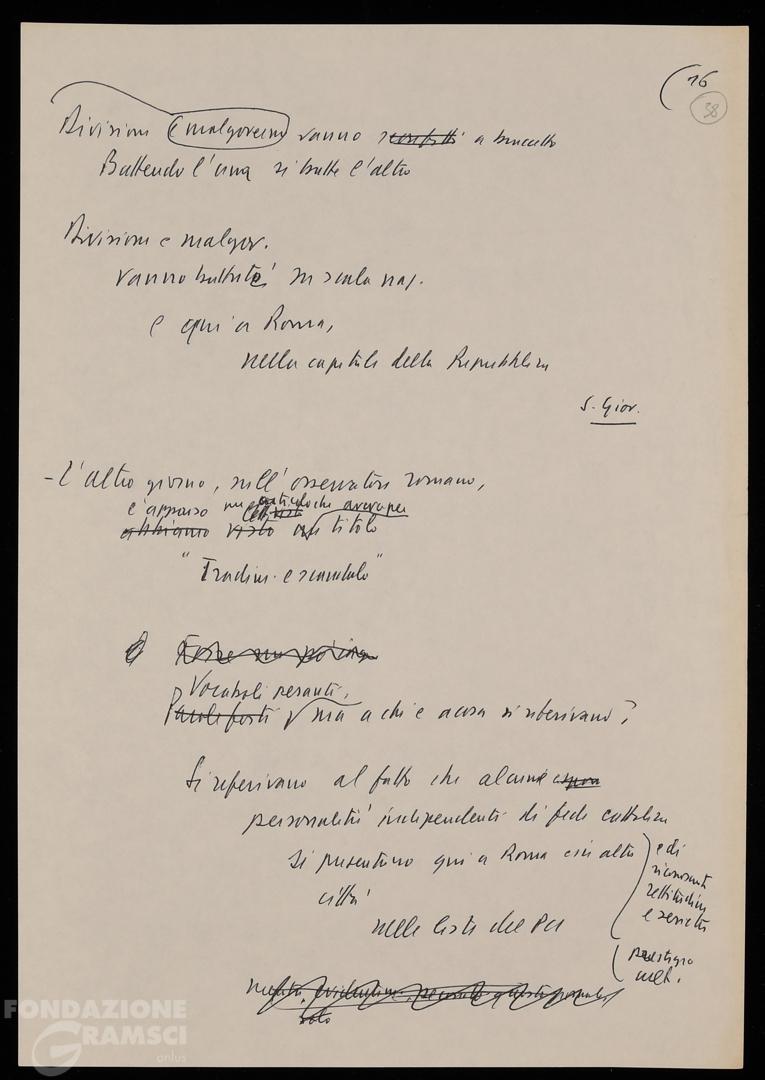 (16
38
Divisioni e malgoverno vanno sconfitti a braccetto
Battendo l'una si batte l'altro
Divisioni e malgov.
vanno battute in scala naz.
e qui a Roma,
nella capitale della Repubblica
S. Giov.
- L'altro giorno, sull'osservatore romano,
è apparso un articolo che aveva per
abbiamo visto un titolo
"Tradim. e scandalo"
Forse un po'
Vocaboli pesanti,
Parole forti ma a chi e a cosa si riferivano?
Si riferivano al fatto che alcune
personalità indipendenti di fede cattolica
si presentano qui a Roma e in altre
città
nelle liste del PCI
e di
riconosciuta
rettitudine
e serietà
prestigio
FONDAZIONE
GRAMSCI
onlus